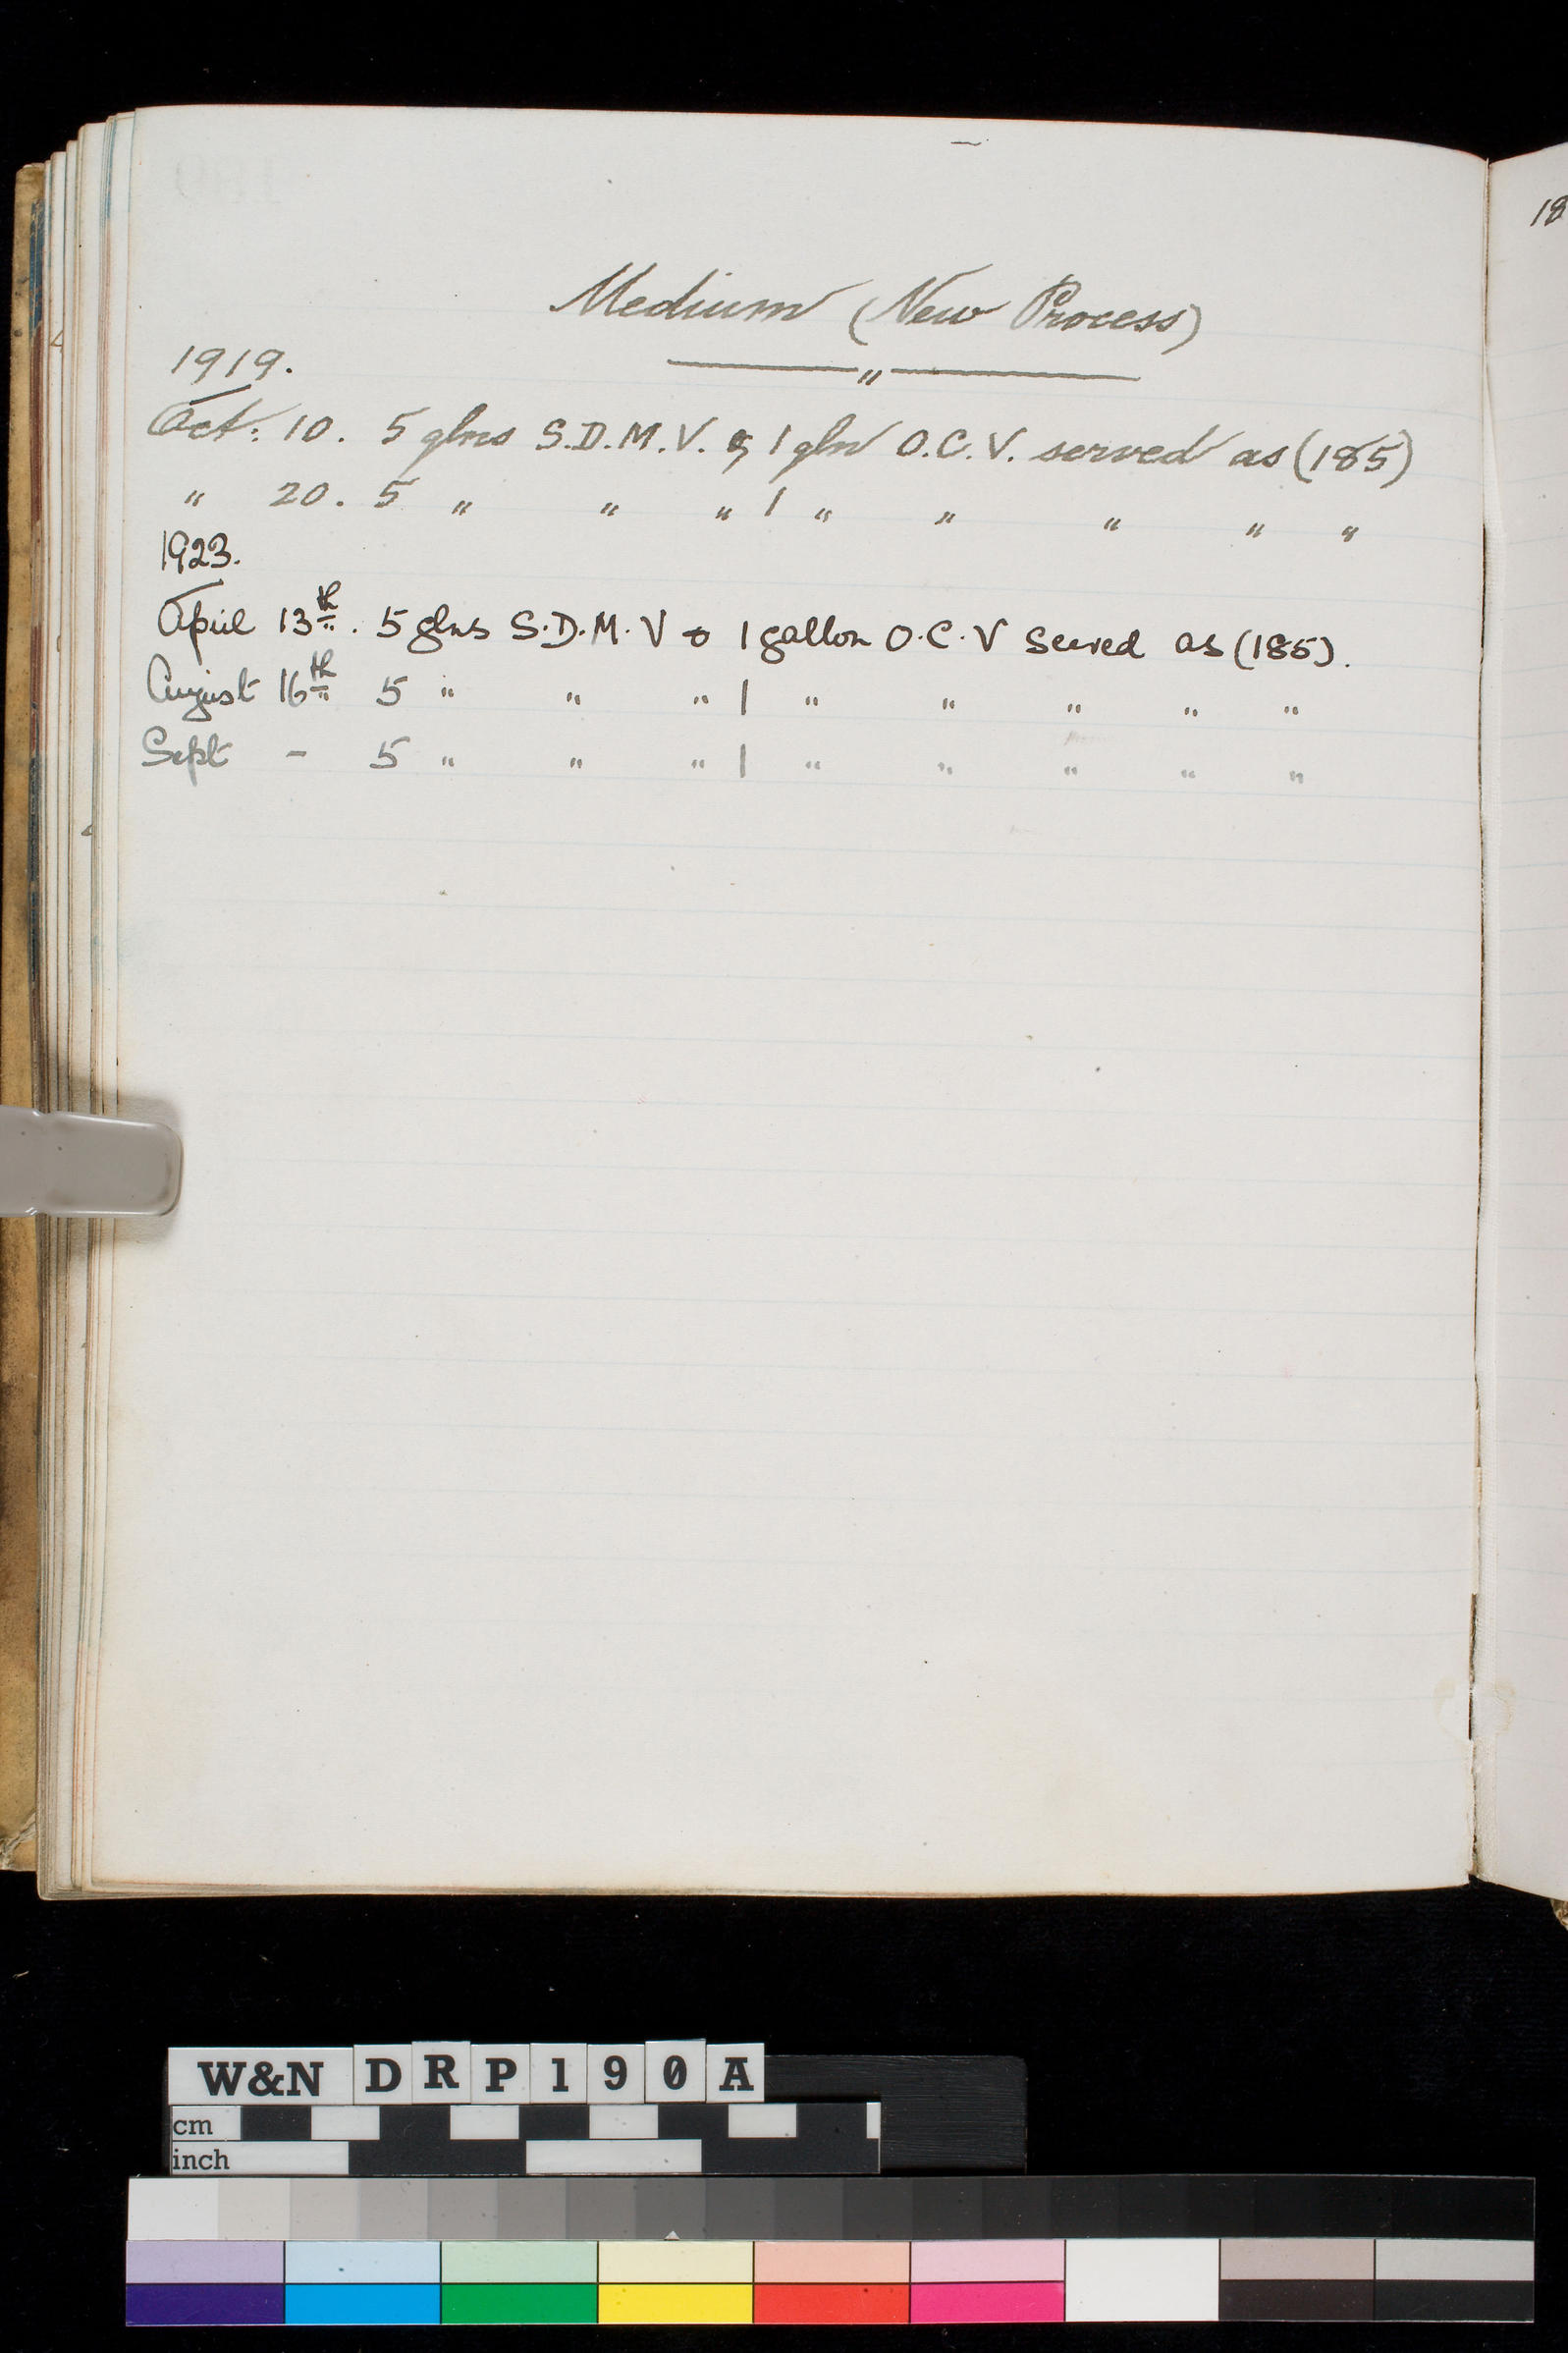 Medium (New Process)
"
1919.
Oct. 10. 5 glns S.D.M.V. & 1 gln O.C.V. served as (185)
" 20. 5 " " " 1 " " " " "
1923.
April 13th. 5 glns S.D.M.V & 1 gallon O.C.V Served as (185).
August 16th 5 " " " 1 " " " " "
Sept - 5 " " " 1 " " " " "
18
W&N DRP190A
cm
inch